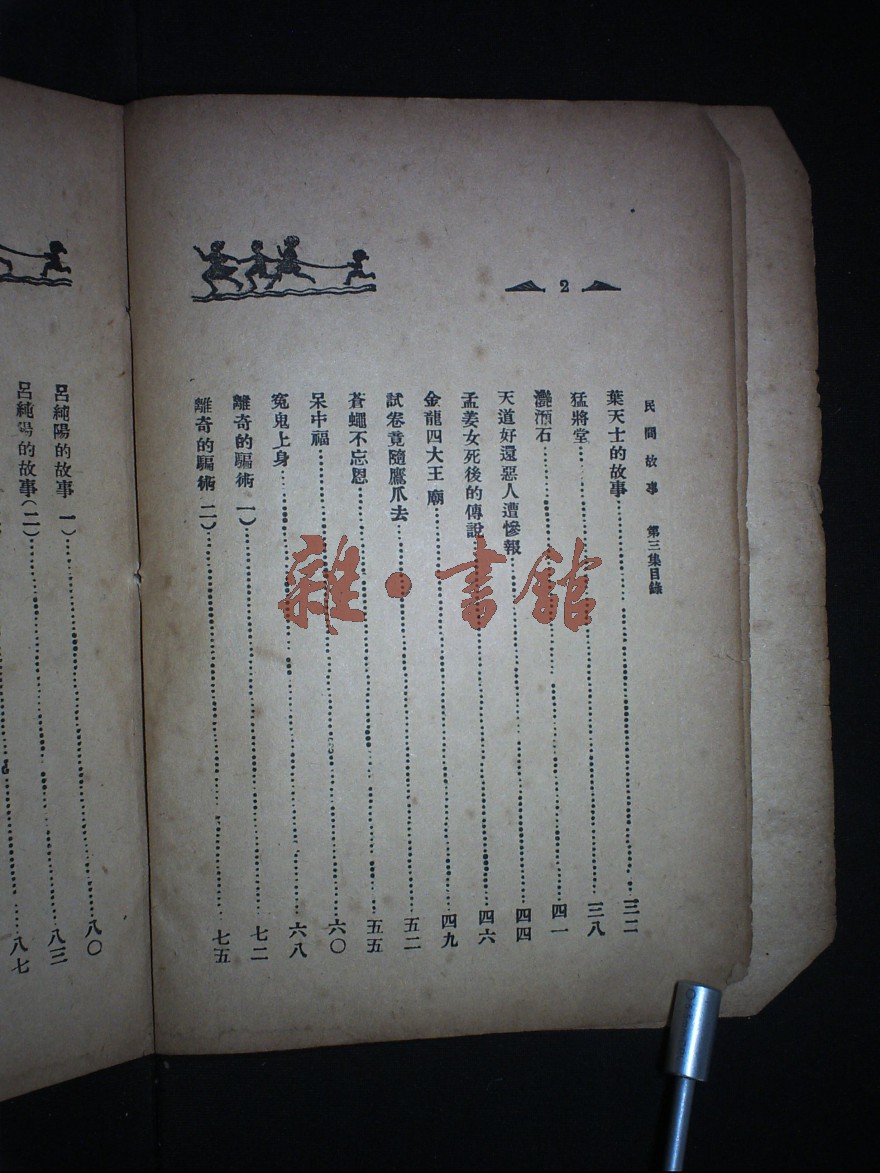 2
民間故事　第三集目錄
葉天士的故事……三二
猛將堂……三八
灩澦石……四一
天道好還惡人遭慘報……四四
孟姜女死後的傳說……四六
金龍四大王廟……四九
試卷竟隨鷹爪去……五二
蒼蠅不忘恩……五五
呆中福……六〇
冤鬼上身……六八
離奇的騙術 一）……七二
離奇的騙術 二）……七五
呂純陽的故事 一）……八〇
呂純陽的故事（二）……八三
八七
雜·書館